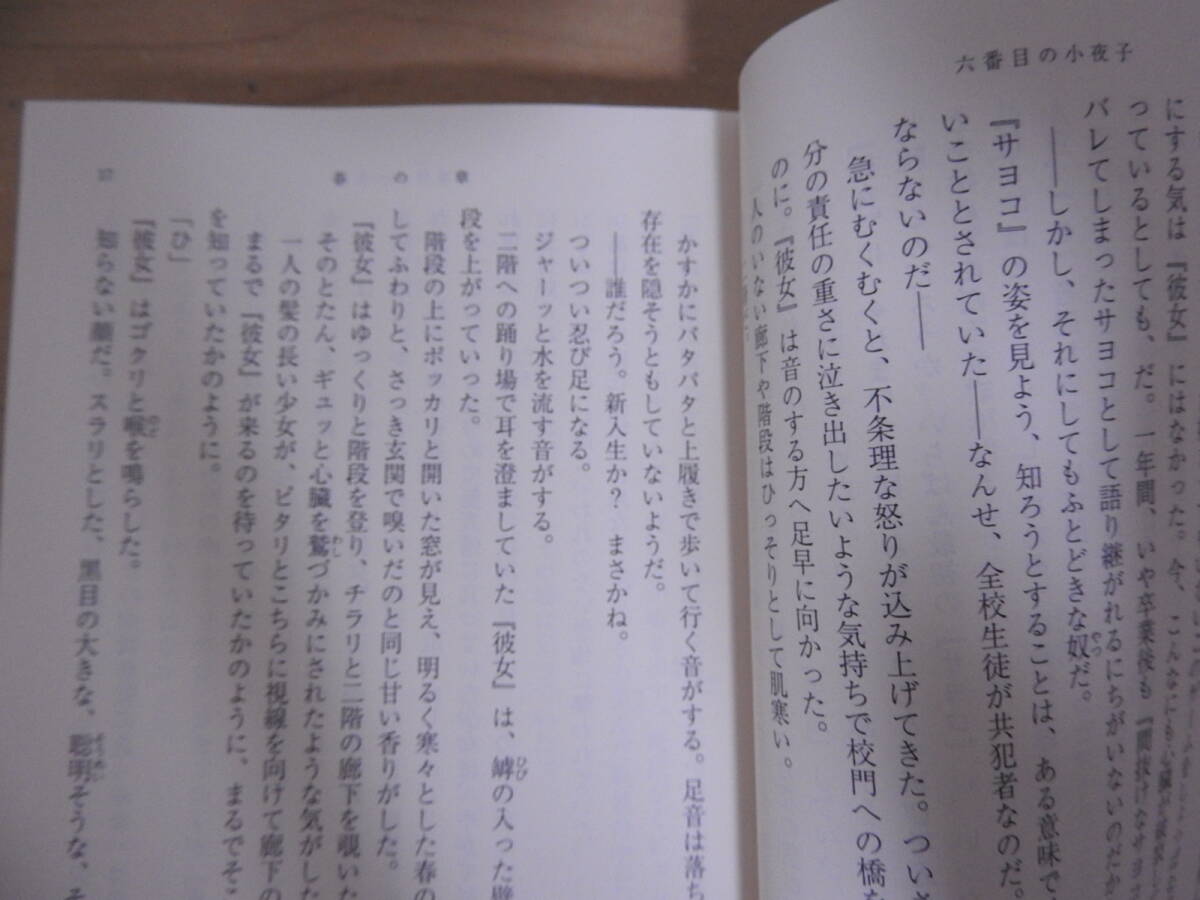 六番目の小夜子
にする気は『彼女』にはなかった。今、こんなにも心臓が
っているとしても、だ。一年間、いや卒業後も『間抜けなサヨコ
バレてしまったサヨコとして語り継がれるにちがいないのだか
――しかし、それにしてもふとどきな奴だ。
やつ
『サヨコ』の姿を見よう、知ろうとすることは、ある意味で
いこととされていた――なんせ、全校生徒が共犯者なのだ。
ならないのだ――
急にむくむくと、不条理な怒りが込み上げてきた。ついさ
分の責任の重さに泣き出したいような気持ちで校門への橋を
のに。『彼女』は音のする方へ足早に向かった。
人のいない廊下や階段はひっそりとして肌寒い。
春の章
かすかにパタパタと上履きで歩いて行く音がする。足音は落ち
存在を隠そうともしていないようだ。
――誰だろう。新入生か？まさかね。
ついつい忍び足になる。
ジャーッと水を流す音がする。
二階への踊り場で耳を澄ましていた『彼女』は、罅の入った壁
ひび
段を上がっていった。
階段の上にポッカリと開いた窓が見え、明るく寒々とした春の
してふわりと、さっき玄関で嗅いだのと同じ甘い香りがした。
『彼女』はゆっくりと階段を登り、チラリと二階の廊下を覗いた
そのとたん、ギュッと心臓を鷲づかみにされたような気がした
わし
一人の髪の長い少女が、ピタリとこちらに視線を向けて廊下の
まるで『彼女』が来るのを待っていたかのように、まるでそこ
を知っていたかのように。
「ひ」
『彼女』はゴクリと喉を鳴らした。
のど
知らない顔だ。スラリとした、黒目の大きな、聡明そうな、そ
そうめい